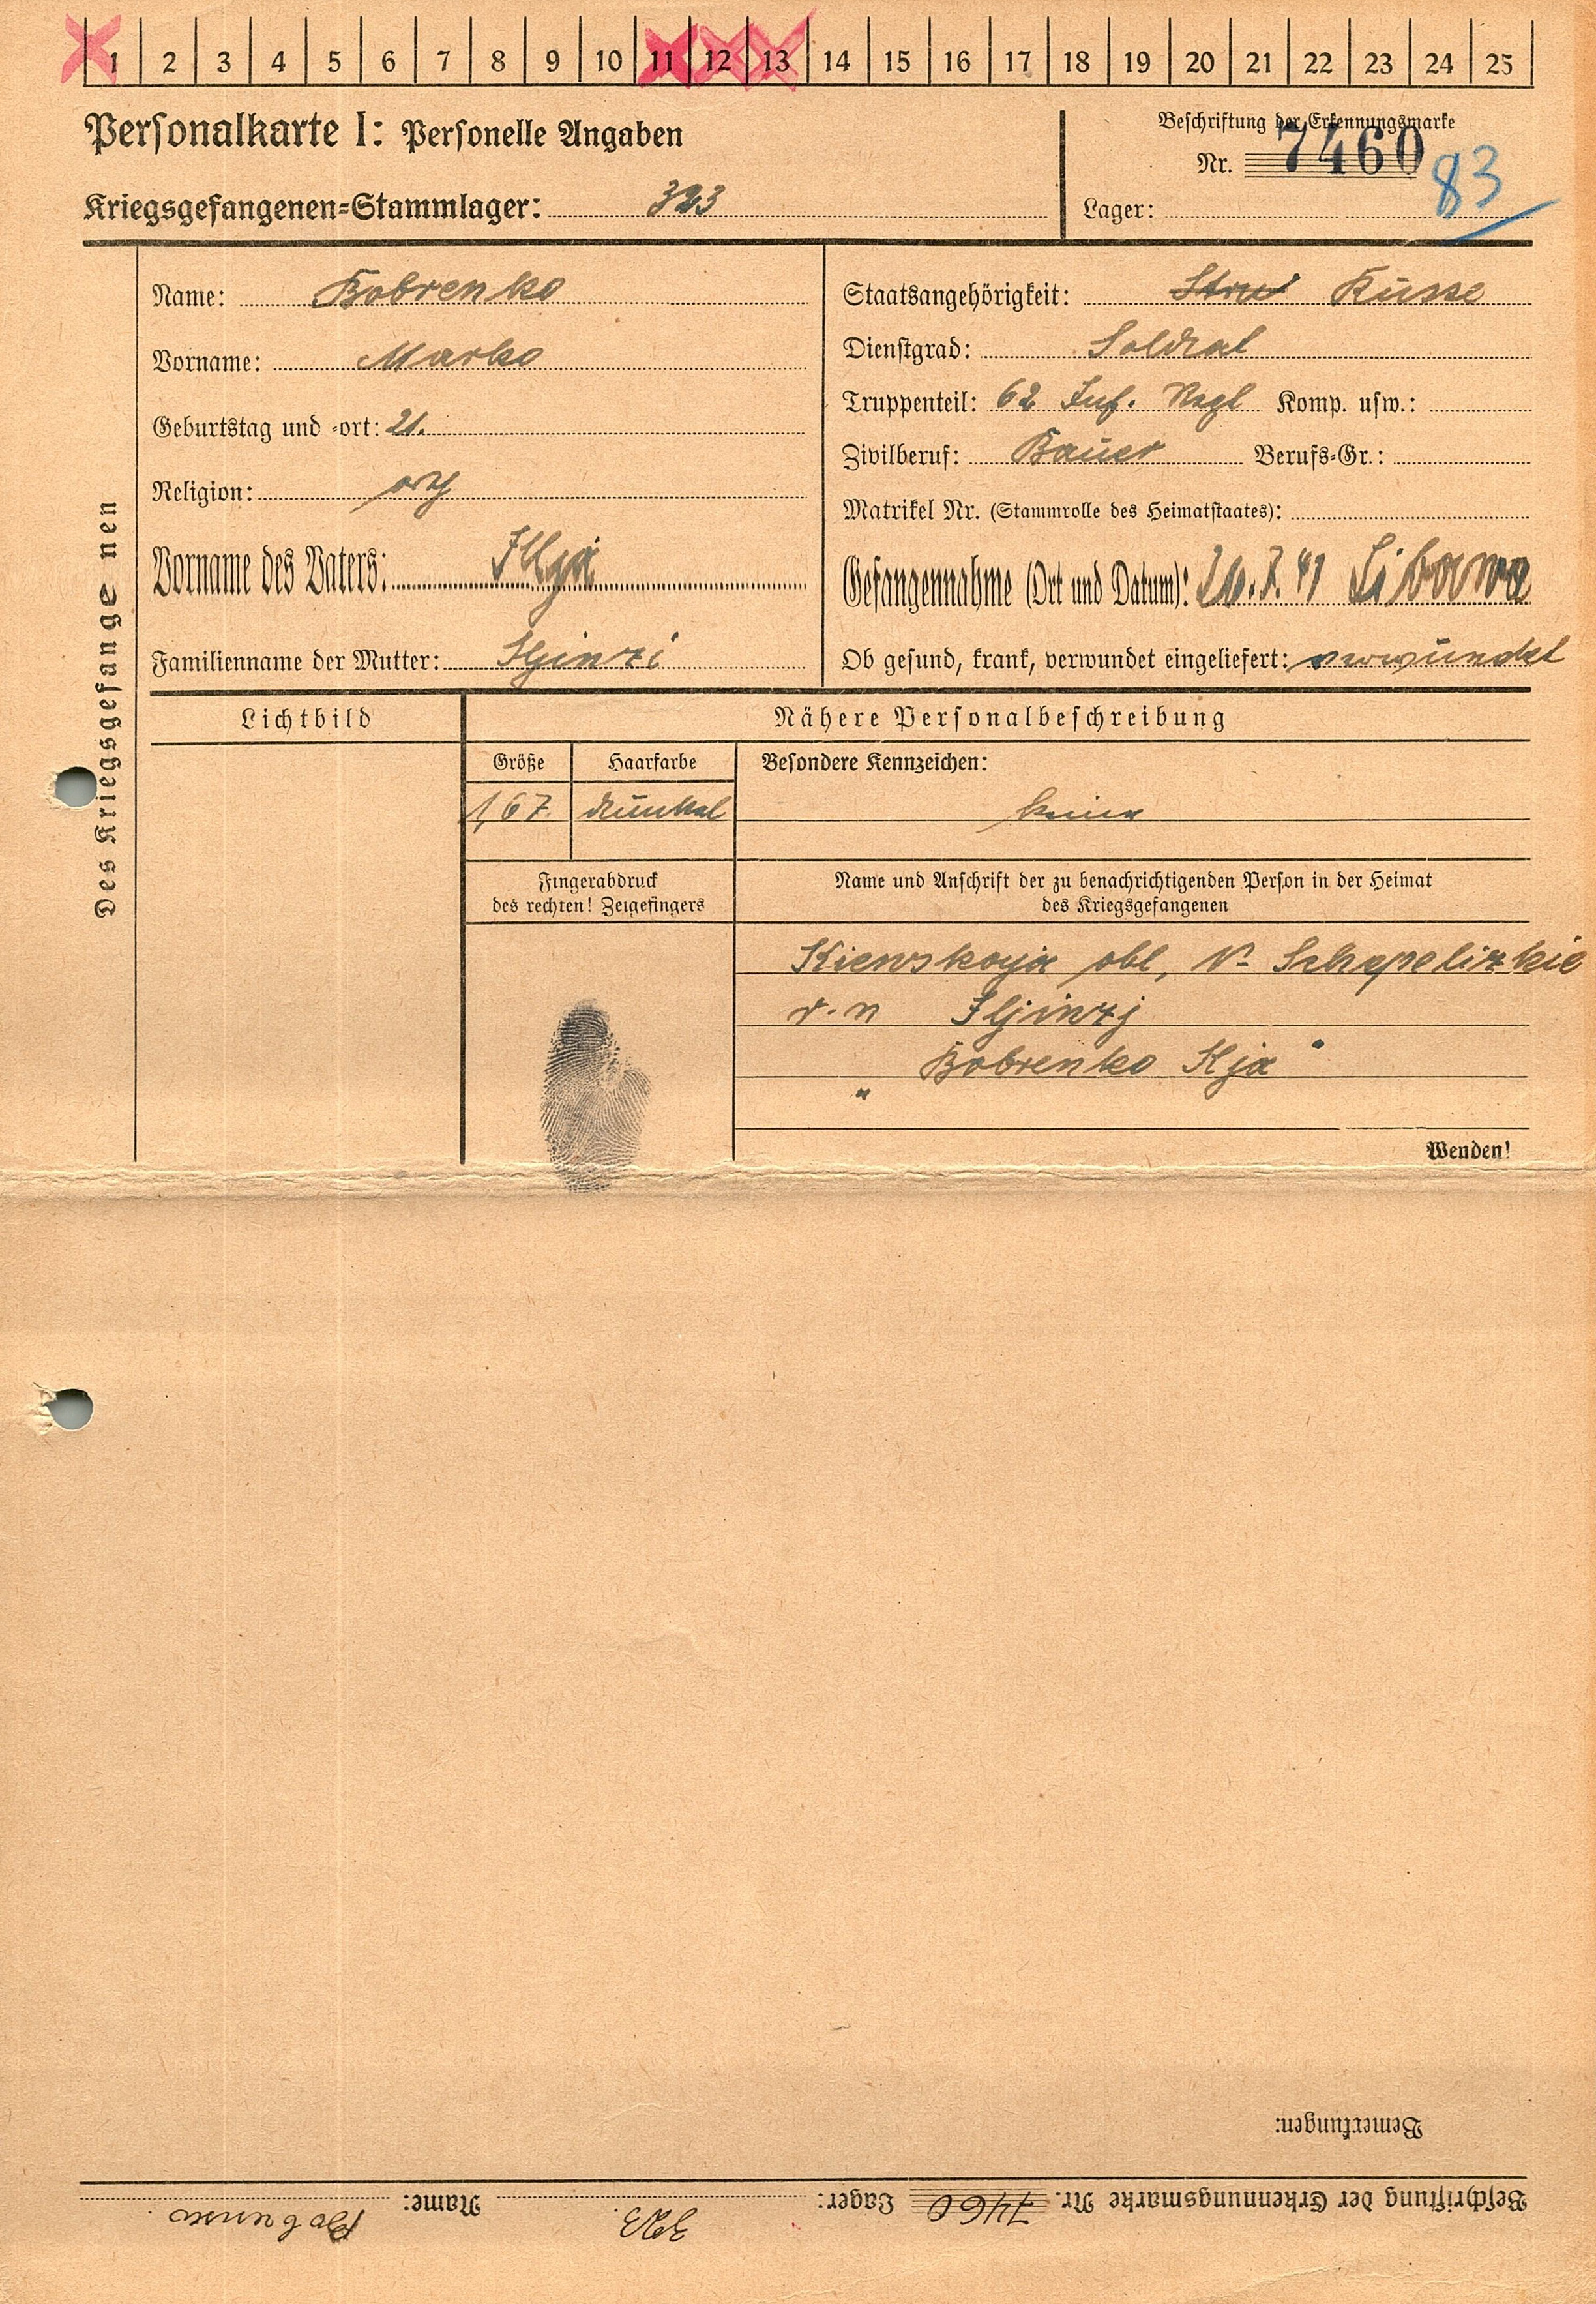 1 2 3 4 5 6 7 8 9 10 11 12 13 14 15 16 17 18 19 20 21 22 23 24 25
Personalkarte I: Personelle Angaben
Beschriftung der Erkennungsmarke
Nr. 7460
83
Kriegsgefangenen=Stammlager: 323
Lager:
Des Kriegsgefangenen
Name: Bobrenko
Vorname: Marko
Geburtstag und -ort: 21.
Religion:
Vorname des Vaters: Ilja
Familienname der Mutter: Iljinzi
Staatsangehörigkeit: Russe
Dienstgrad: Soldat
Truppenteil: 62 Inf. Regt Komp. usw.:
Zivilberuf: Bauer Berufs=Gr.:
Matrikel Nr. (Stammrolle des Heimatstaates):
Gefangennahme (Ort und Datum): 41 Libawa
Ob gesund, krank, verwundet eingeliefert: verwundet
Lichtbild
Nähere Personalbeschreibung
Größe Haarfarbe Besondere Kennzeichen:
1,67 dunkel keine
Fingerabdruck
des rechten! Zeigefingers
Name und Anschrift der zu benachrichtigenden Person in der Heimat
des Kriegsgefangenen
Kiewskoja obl, Schepelizkie
Iljinzj
Bobrenko Ilja
Wenden!
Bemerkungen:
Beschriftung der Erkennungsmarke Nr. 7460 Lager: 323 Name: